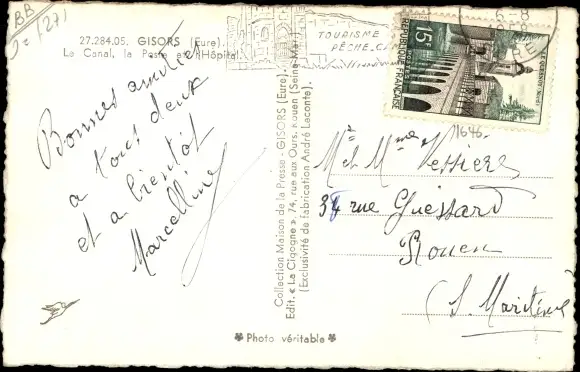 BB
27.284.05. GISORS (Eure).
Le Canal, la Poste et l'Hôpital
Bonnes amitiés
a tous deux
et a bientôt
Marcelline
Collection Maison de la Presse - GISORS (Eure).
Edit. « La Cigogne », 74, rue aux Ours, Rouen (Seine-Mar
(Exclusivité de fabrication André Leconte).
Photo véritable
TOURISME
PÊCHE
15F
REPUBLIQUE FRANÇAISE
POSTES
LE QUESNOY
1646
M et Mme Vessiere
34 rue Guessard
Rouen
(S. Maritime)